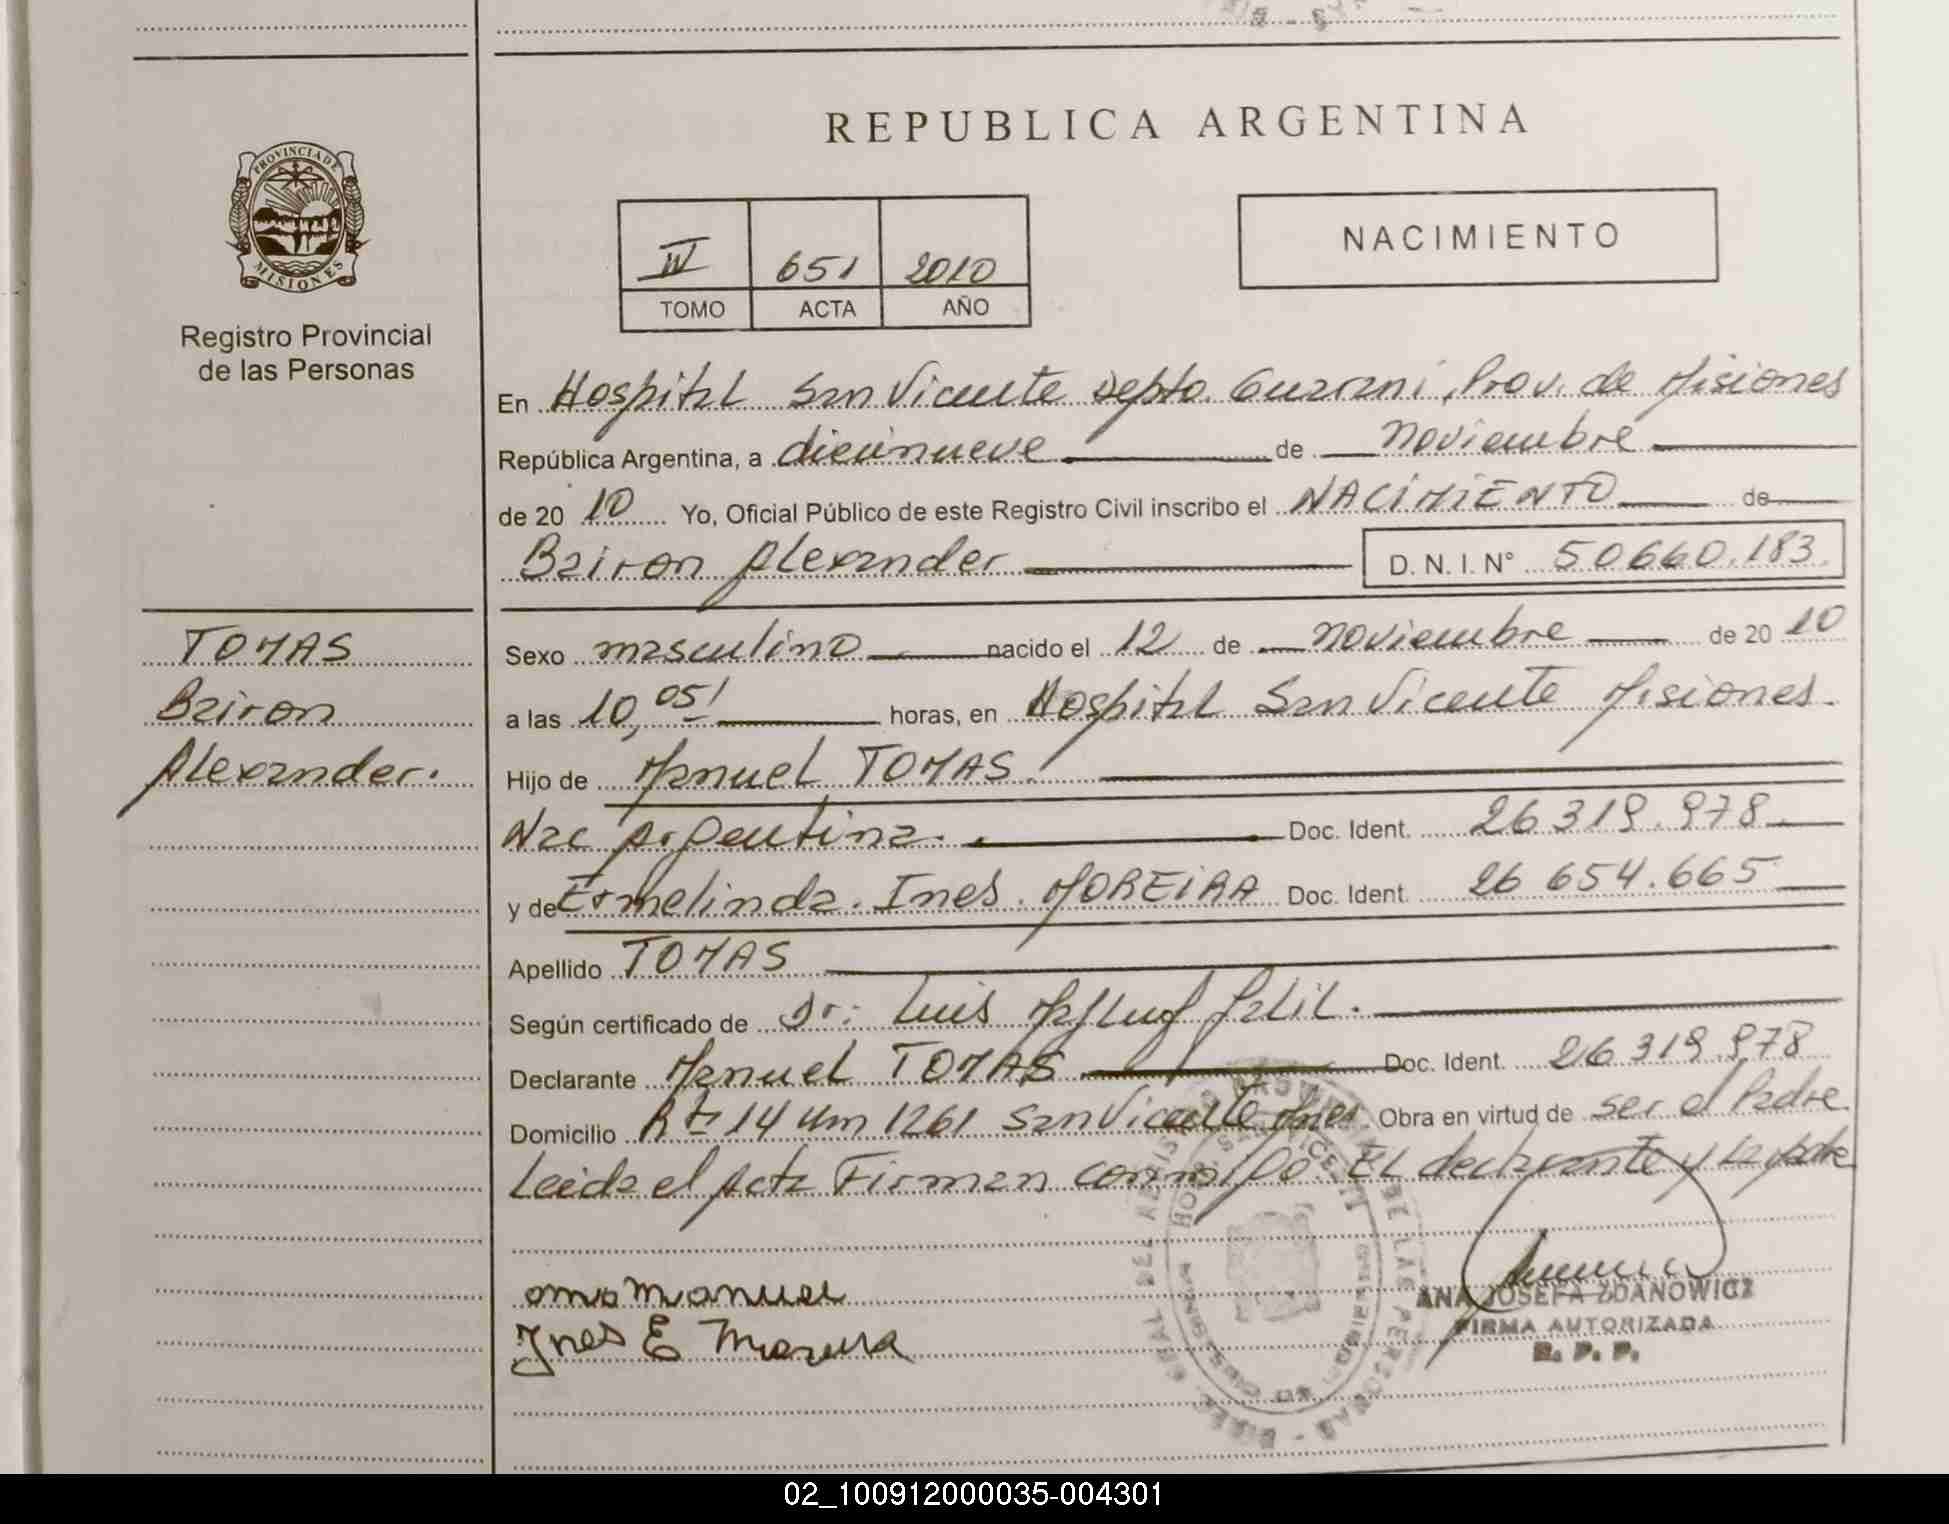 REPUBLICA ARGENTINA
PROVINCIA DE
MISIONES
Registro Provincial
de las Personas
IV 651 2010
TOMO ACTA AÑO
NACIMIENTO
En Hospital San Vicente Depto. Guarani, Prov. de Misiones
República Argentina, a diecinueve de noviembre
de 20 10 Yo, Oficial Público de este Registro Civil inscribo el NACIMIENTO de
Bairon Alexander D. N. I. N° 50660.183
TOMAS
Bairon
Alexander.
Sexo masculino nacido el 12 de noviembre de 20 10
a las 10,05' horas, en Hospital San Vicente Misiones.
Hijo de Manuel TOMAS.
Nac Argentina. Doc. Ident. 26 319.978
y de Ermelinda. Ines. MOREIRA Doc. Ident. 26 654.665
Apellido TOMAS
Según certificado de Dr: Luis
Declarante Manuel TOMAS Doc. Ident. 26 319.978
Domicilio Rta 14 Km 1261 San Vicente Mnes. Obra en virtud de ser el Padre.
Leida el Acta Firman conmigo El declarante y la
Manuel
Ines E Moreira
ANA JOSEFA ZDANOWICZ
FIRMA AUTORIZADA
R. P. P.
02_100912000035-004301